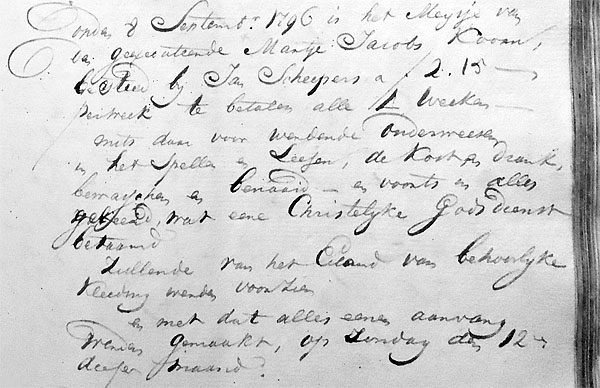 op den 8 Septembr 1796 is het Meysje van
de gequeteerde Mantje Jacobs Koorn,
besteed by Jan Scheepers a f 2.15 —
perweek te betalen alle 4 Weeken —
mits daar voor werdende onderweesen
in het Spellen en Leesen, de Kost en drank,
bewasschen en benaaid — en voorts in alles
geleerd, wat eene Christelyke GodsDienst
betaamd
Zullende van het Eiland van behoorlyke
Kleeding werden voorzien
en met dat alles eenen aanvang
werden gemaakt, op Zondag den 12
deeser maand.